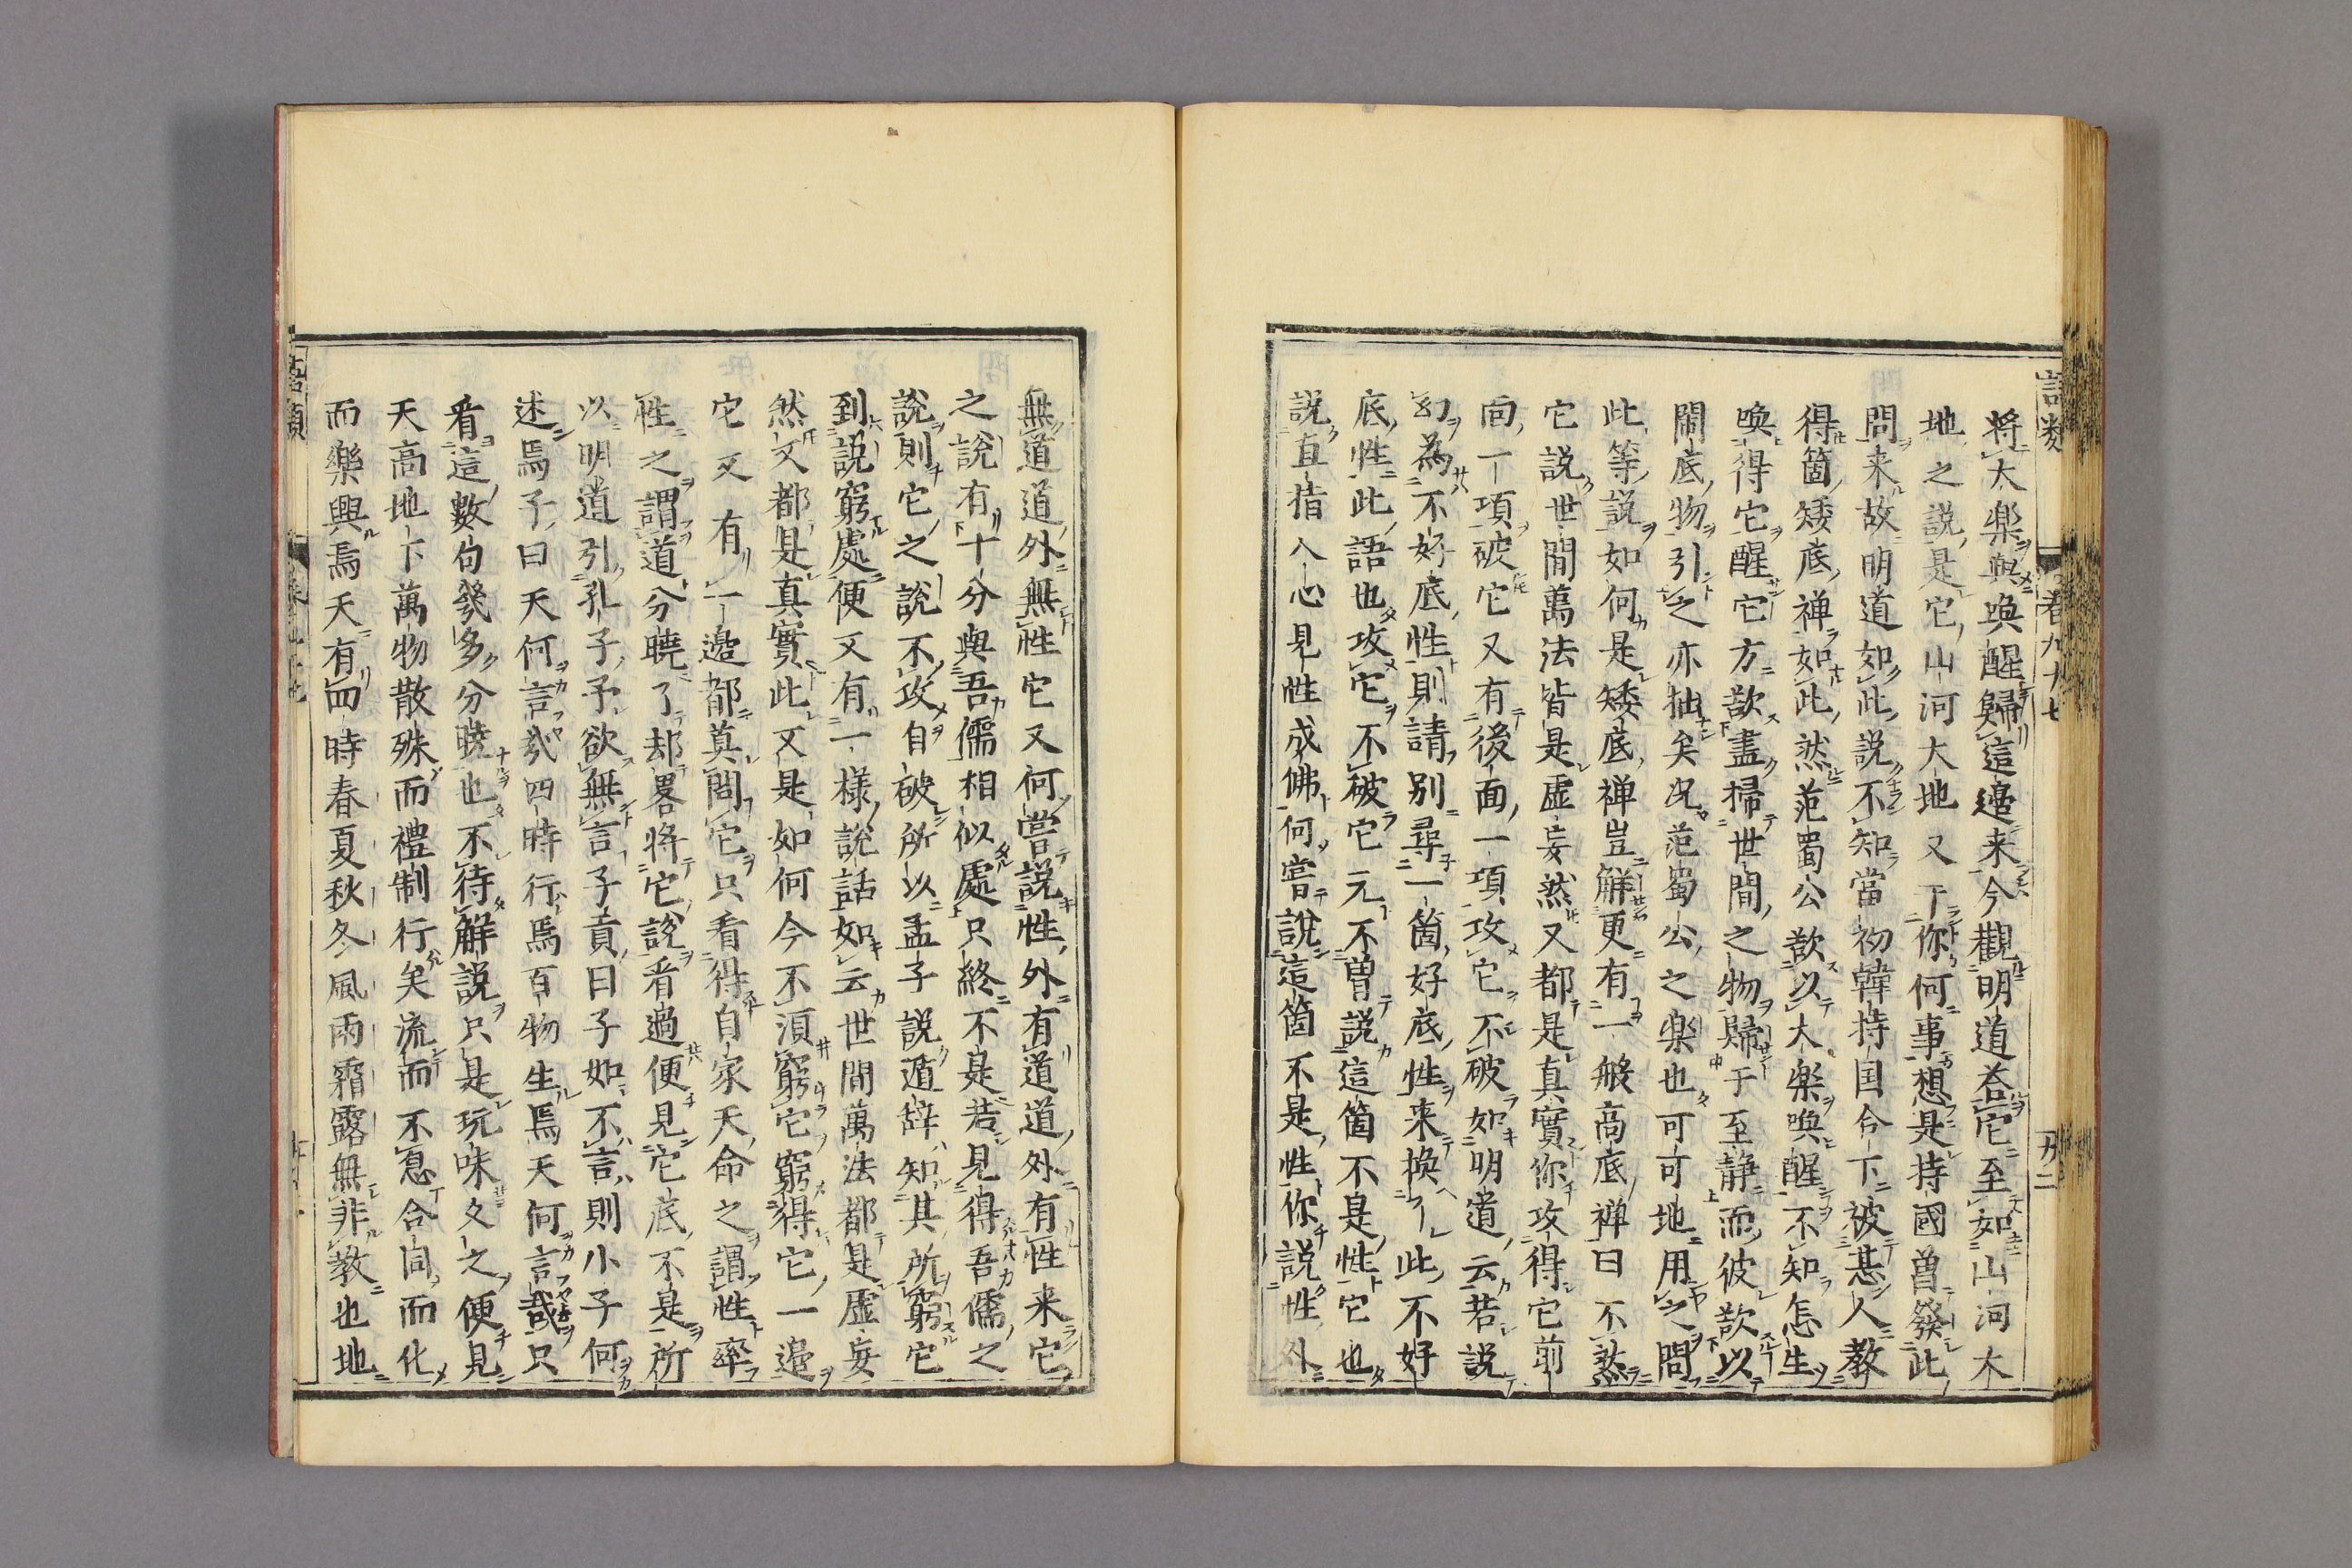 語類 卷九十七 廾二
将大樂與喚醒歸這邉来今觀明道荅它至如山河大
地之説是它山河大地又干你何事想是持國曽發此
問来故明道如此説不知當初韓持国合下被甚人教
得箇矮底禅如此然范蜀公欲以大樂喚醒不知怎生
喚得它醒它方欲盡掃世間之物歸于至静而彼欲以
閙底物引之亦拙矣况范蜀公之樂也可可地用之問
此等説如何是矮底禅豈觧更有一般高底禅曰不然
它説世間萬法皆是虚妄然又都是真實你攻得它前
面一項破它又有後面一項攻它不破如明道云若説
幻為不好底性則請别尋一箇好底性来換此不好
底性此語也攻它不破它元不曽説這箇不是性它也
説直指人心見性成佛何甞說這箇不是性你説性外
無道道外無性它又何甞説性外有道道外有性来它
之説有十分與吾儒相似處只終不是若見得吾儒之
説則它之説不攻自破所以孟子説遁辝知其所窮它
到説窮處便又有一様説話如云世間萬法都是虚妄
然又都是真實此又是如何今不湏窮它窮得它一邉
它又有一邉都莫問它只看得自家天命之謂性率
性之謂道分曉了却畧将它説看過便見它底不是所
以明道引孔子予欲無言子貢曰子如不言則小子何
述焉子曰天何言㢤四時行焉百物生焉天何言哉只
看這數句㡬多分曉也不待觧説只是玩味久之便見
天高地下萬物散殊而禮制行矣流而不息合同而化
而樂興焉天有四時春夏秋冬風雨霜露無非教也地
語類